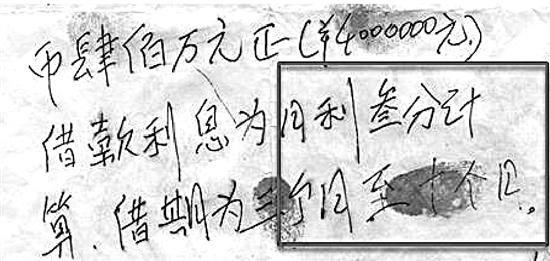 币肆佰万元正(¥4000000元.)
借款利息为月利叁分计
算.借期为三个月至十个月。